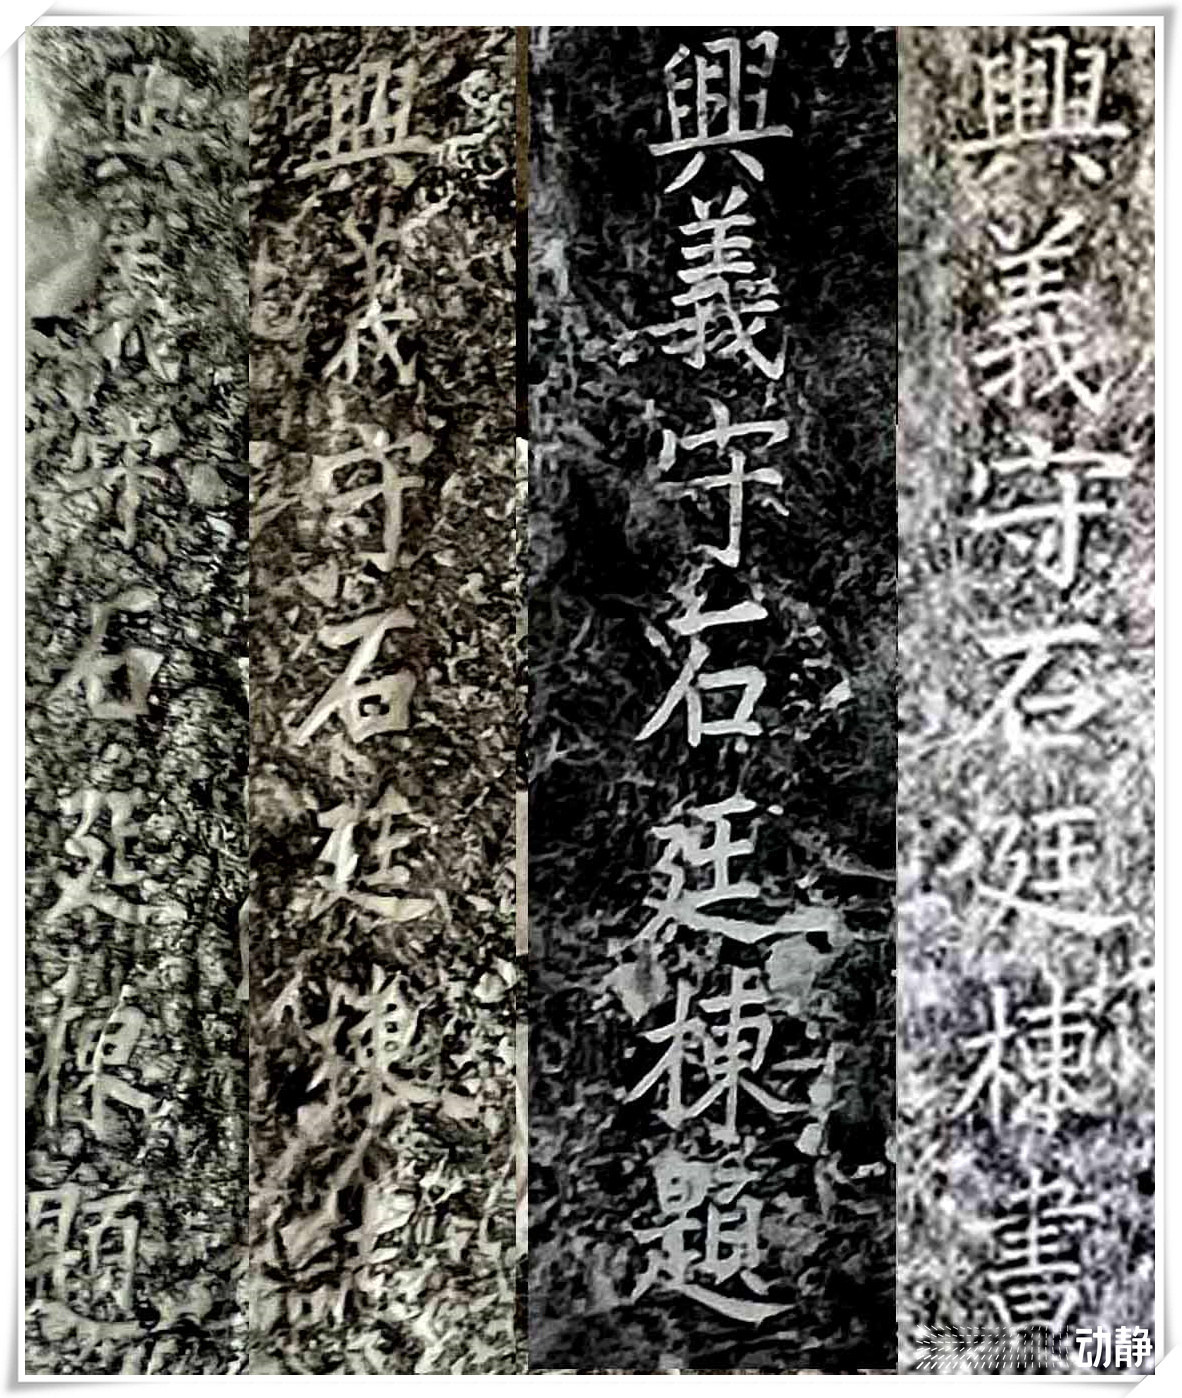 興義守石廷棟書
興義守石廷棟題
興義守石廷棟
興義守石廷棟題
动静